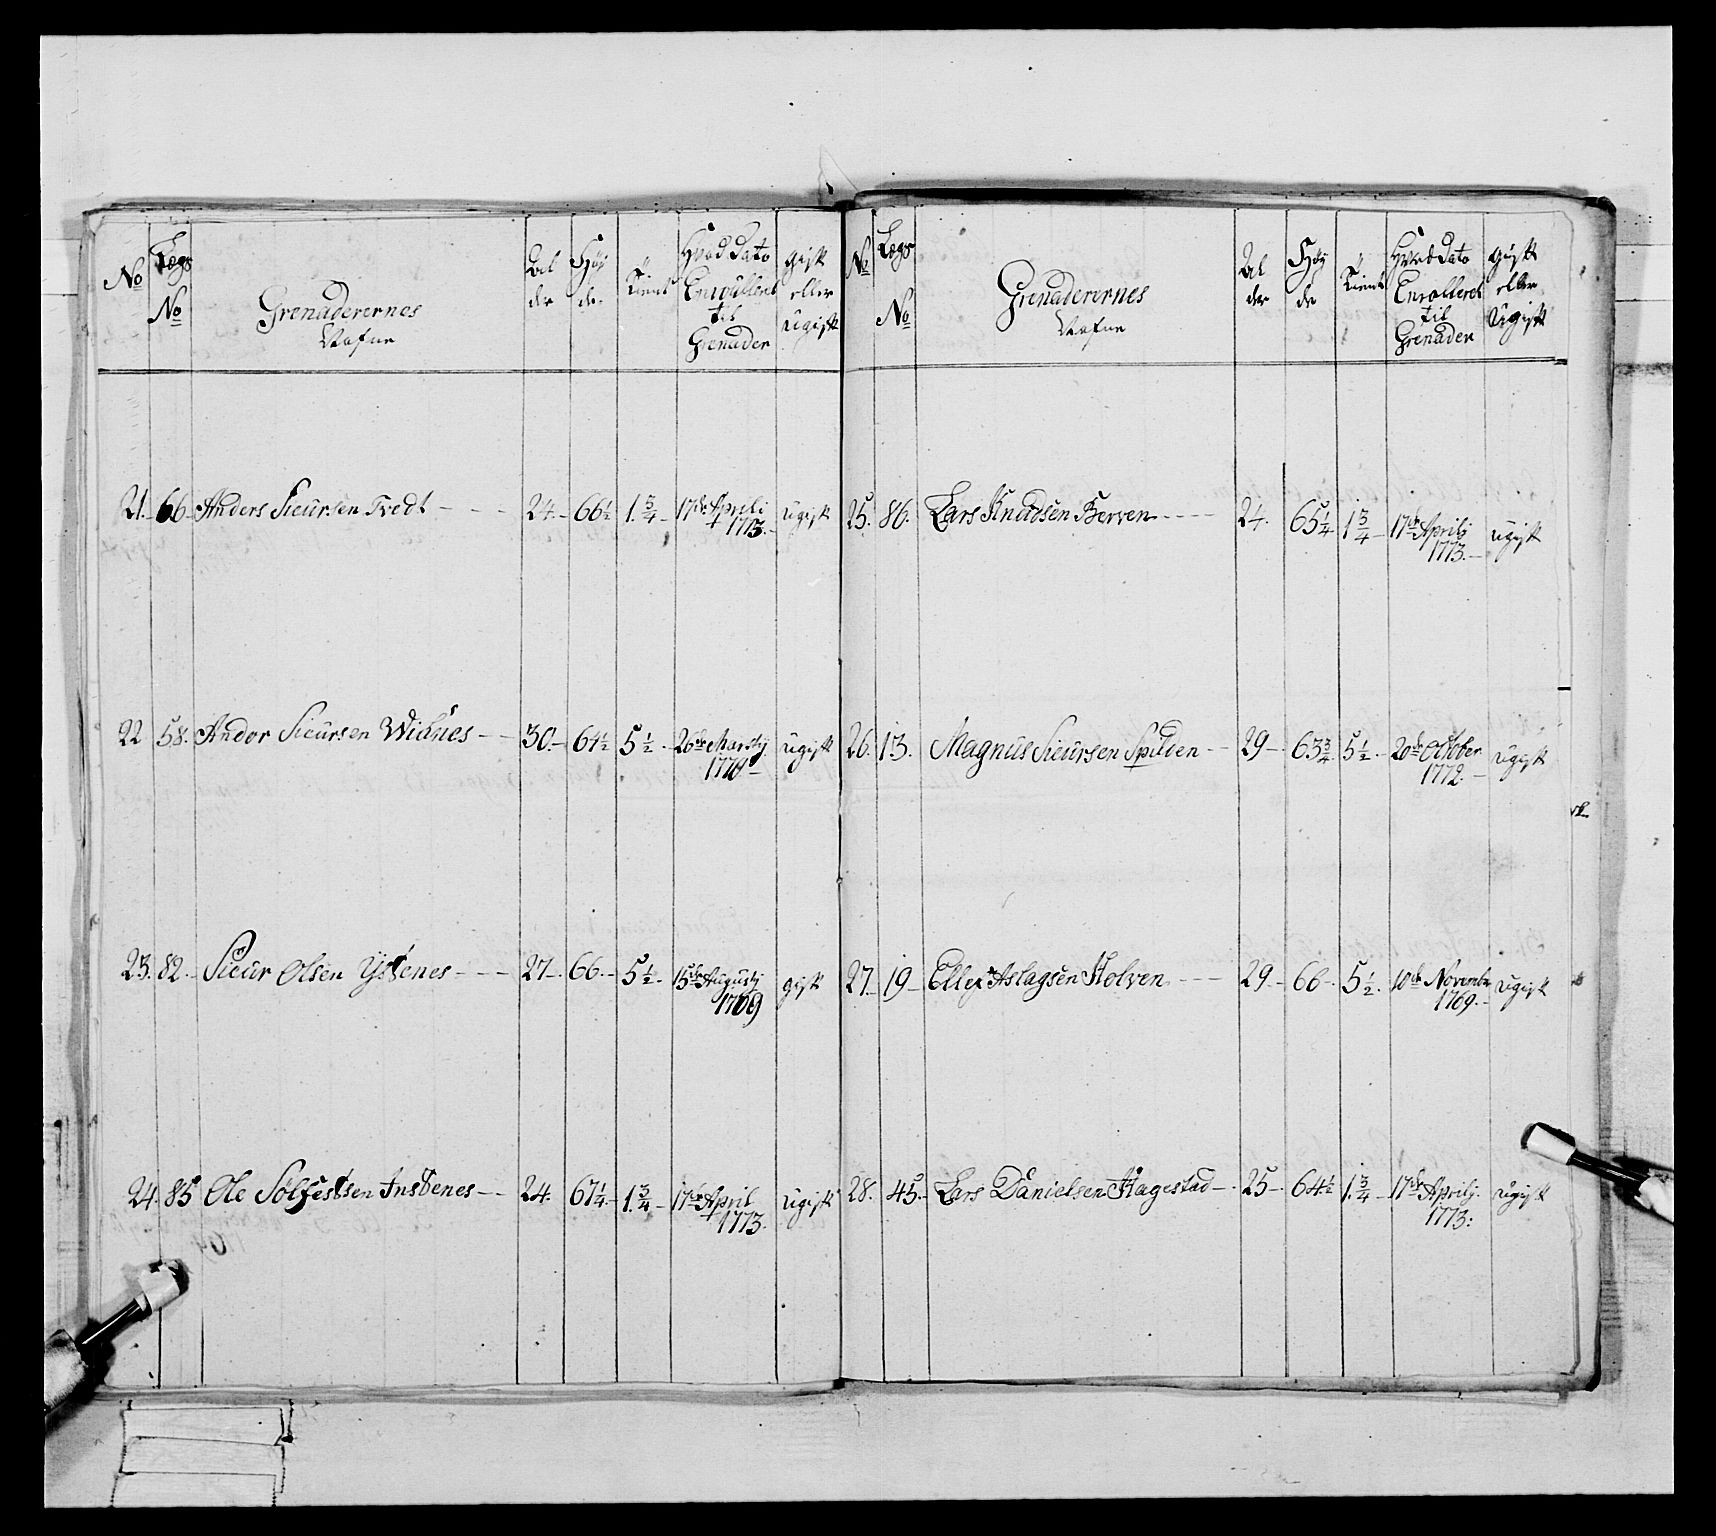 No Lægs No Grenaderernes Nafne Alder Høyde Tient Hvad Dato Enrolleret til Grenader gift eller ugift
21. 66. Anders Siursen Tvedt - - - 24. 66 1/2 1. 3/4 17de Aprili 1773. ugift
22 58. Andor Siursen Widnes - - 30. 64 1/2 5 1/2 26de Martij 1770 ugift
23. 82. Siur Olsen Ystenes - - - 27. 66. 5 1/2 15de Augustj 1769 gift
24. 85 Ole Sølfestsen Instenes - - 24. 67 1/4 1. 3/4 17de April 1773. ugift
No Lægs No Grenaderernes Nafne Alder Høyde Tient Hvad Dato Enrolleret til Grenader gift eller Ugift
25. 86. Lars Knudsen Berven - - - 24. 65 1/4 1 3/4 17de Aprilj 1773. ugift
26. 13. Magnus Siursen Spilden - - 29 63 3/4 5 1/2 20de October 1772. ugift
27. 19 Ellef Aslagsen Holven - - - 29. 66 5 1/2. 10de Novembr 1769. ugift
28. 45. Lars Danielsen Hagestad - 25 64 1/2 1. 3/4 17de Aprilj. 1773: ugift